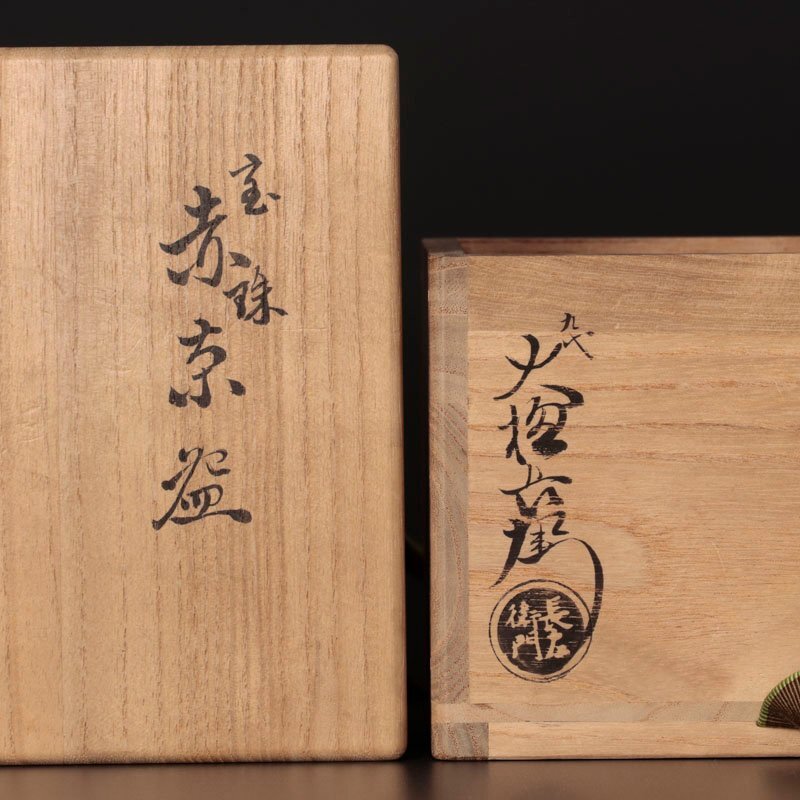 宝珠
赤茶盌
九代
大樋長左衛門
長左
衛門